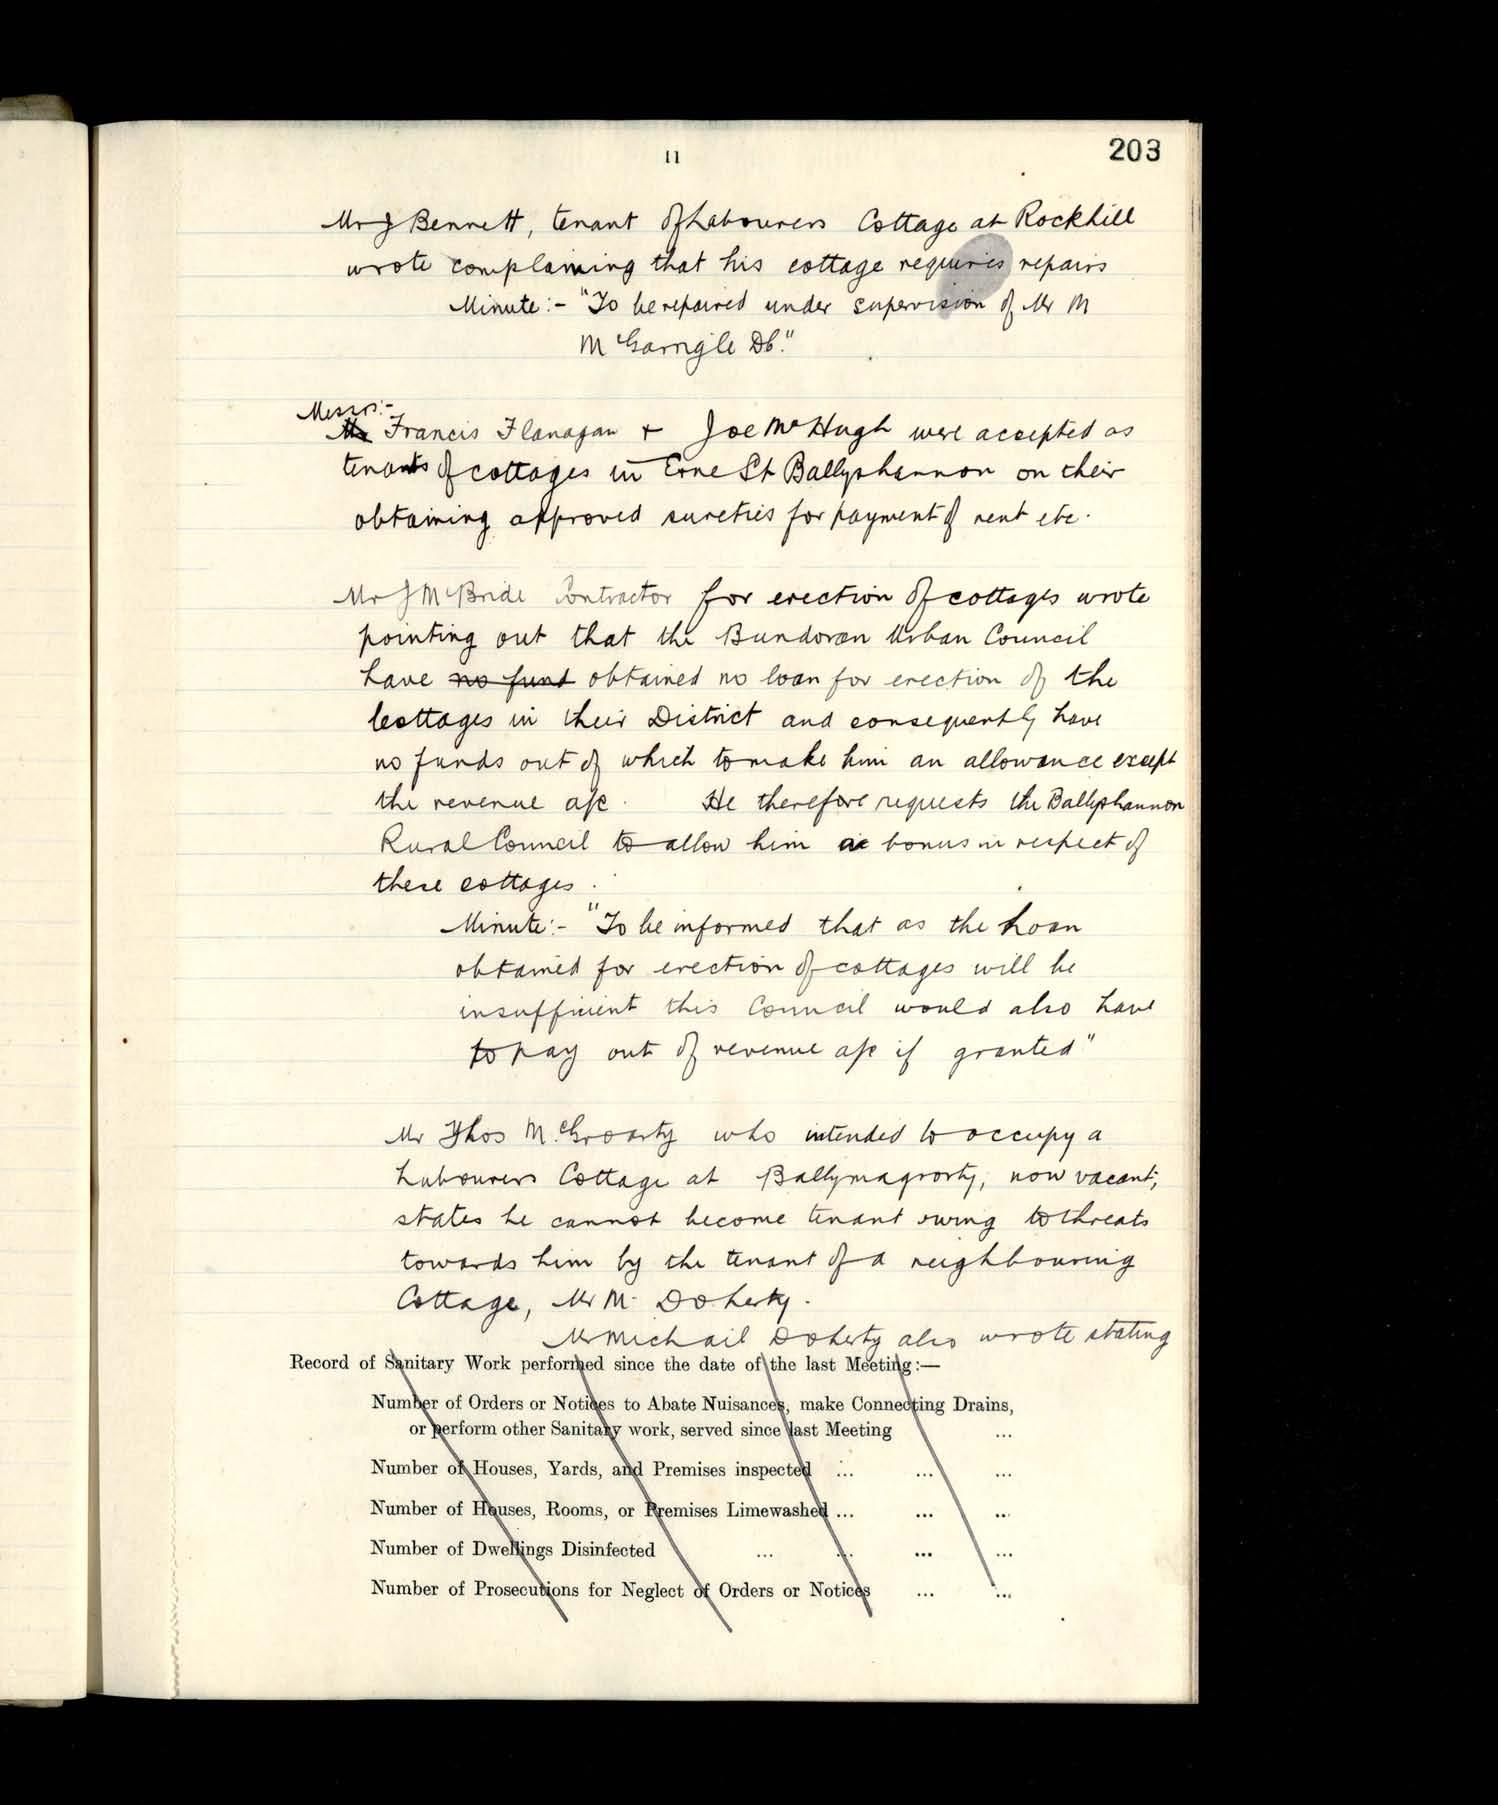 11
203
Mr J Bennett, tenant of Labourers Cottage at Rockhill
wrote complaining that his cottage requires repairs
Minute:- "To be repaired under supervision of Mr M
McGarrigle DC."
Messrs:-
Mr Francis Flanagan + Joe McHugh were accepted as
tenants of cottages in Erne St Ballyshannon on their
obtaining approved sureties for payment of rent etc.
Mr J McBride Contractor for erection of cottages wrote
pointing out that the Bundoran Urban Council
have no fund obtained no loan for erection of the
Cottages in their District and consequently have
no funds out of which to make him an allowance except
the revenue a/c. He therefore requests the Ballyshannon
Rural Council to allow him a bonus in respect of
these cottages.
Minute:- "To be informed that as the Loan
obtained for erection of cottages will be
insufficient this Council would also have
to pay out of revenue a/c if granted"
Mr Thos McGroarty who intended to occupy a
Labourers Cottage at Ballymagrorty, now vacant,
states he cannot become tenant owing to threats
towards him by the tenant of a neighbouring
Cottage, Mr M. Doherty.
Mr Michail Doherty also wrote stating
Record of Sanitary Work performed since the date of the last Meeting:—
Number of Orders or Notices to Abate Nuisances, make Connecting Drains,
or perform other Sanitary work, served since last Meeting ...
Number of Houses, Yards, and Premises inspected ... ... ...
Number of Houses, Rooms, or Premises Limewashed ... ... ...
Number of Dwellings Disinfected ... ... ... ...
Number of Prosecutions for Neglect of Orders or Notices ... ...